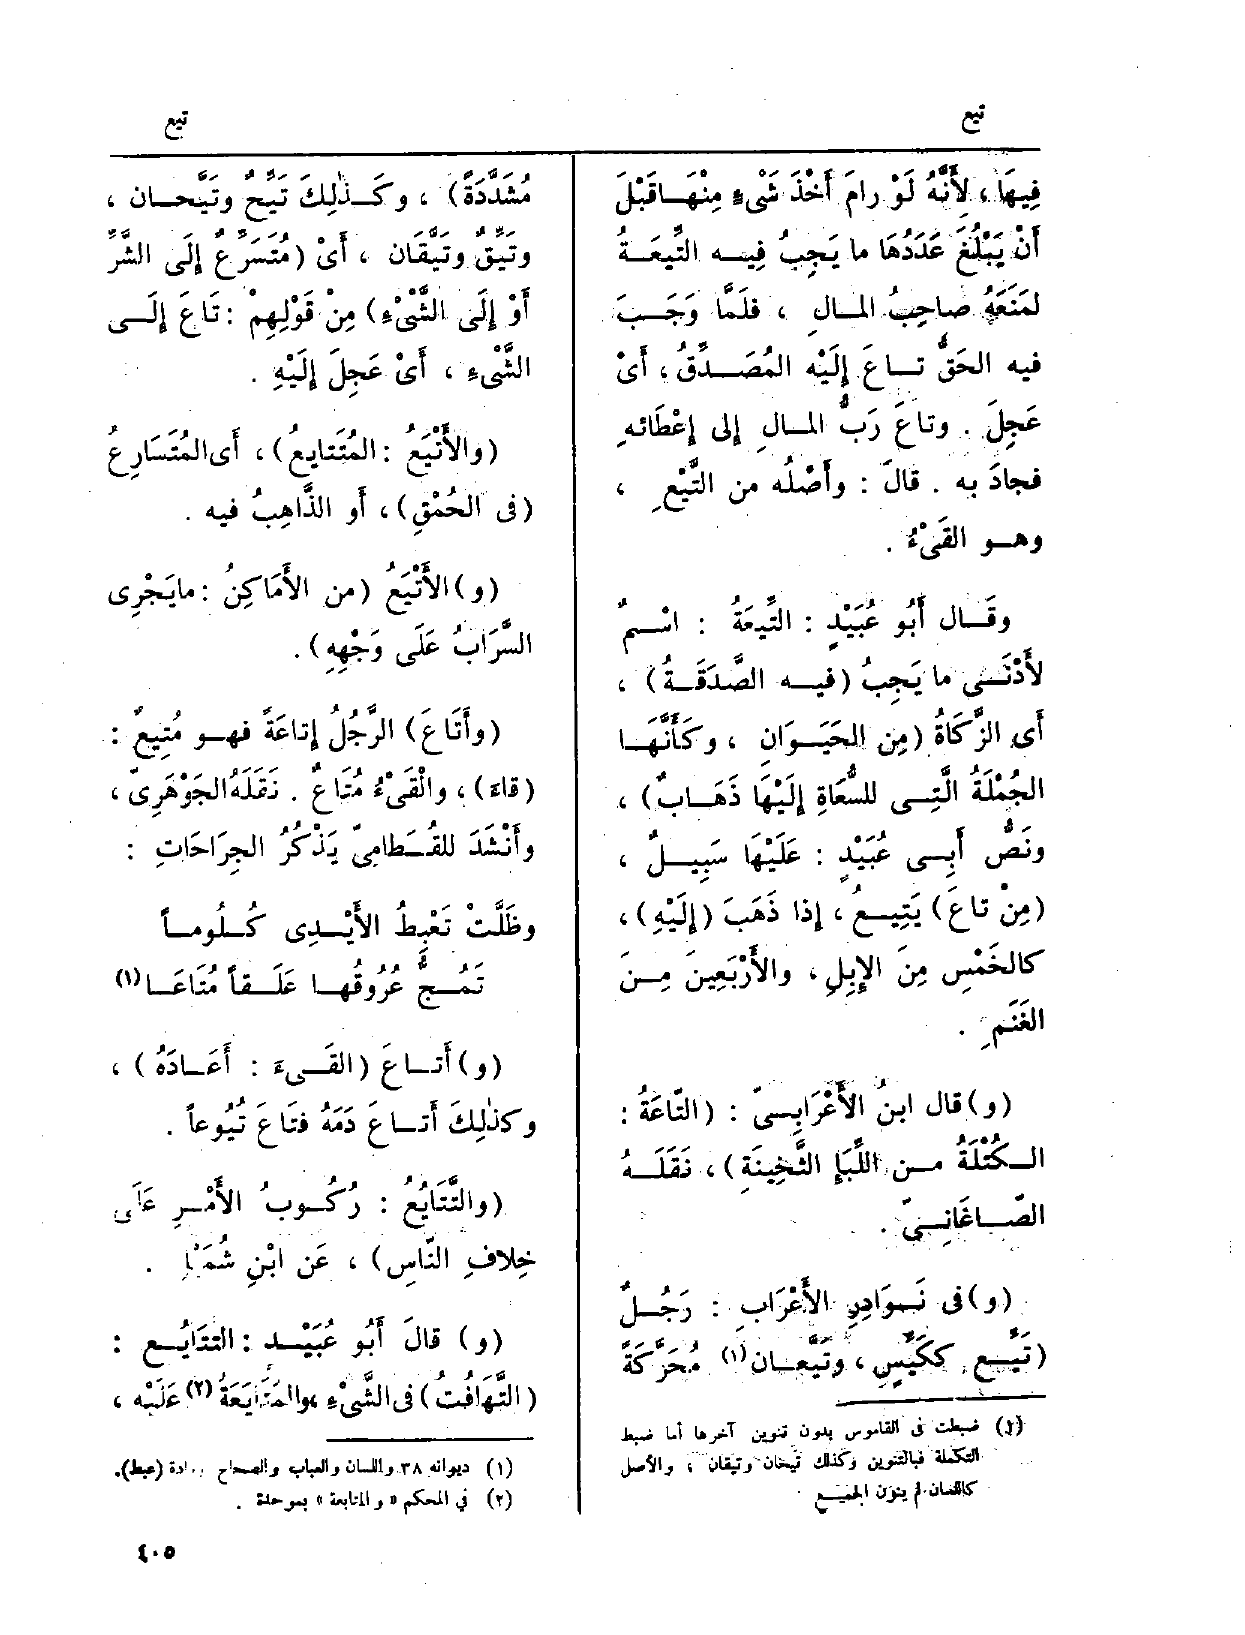 تيع
تيع
فِيهَا، لأَنَّهُ لَوْ رامَ أَخْذَ شَىْءٍ مِنْهَا قَبْلَ
أَنْ يَبْلُغَ عَدَدُهَا ما يَجِبُ فِيه التِّيعَةُ
لَمَنَعَهُ صاحِبُ المالِ ، فلَمَّا وَجَبَ
فيه الحَقُّ تاعَ إِلَيْه المُصَدِّقُ، أَىْ
عَجِلَ . وتاعَ رَبُّ المالِ إلى إِعْطَائه
فجادَ به . قالَ : وأَصْلُه من التَّيْعِ ،
وهو القَىْءُ .
وقَال أَبُو عُبَيْدٍ : التِّيعَةُ : اسْمٌ
لأَدْنَى ما يَجِبُ (فيه الصَّدَقَةُ) ،
أَى الزَّكَاةُ (مِن الحَيَوَانِ ، وكَأَنَّهَا
الجُمْلَةُ الَّتِى للسُّعَاةِ إِلَيْهَا ذَهَابٌ) ،
ونَصُّ أَبِى عُبَيْدٍ : عَلَيْهَا سَبِيلٌ ،
(مِنْ تاعَ) يَتِيعُ ، إذا ذَهَبَ (إِلَيْهِ) ،
كالخَمْسِ مِنَ الإِبِلِ ، والأَرْبَعِينَ مِنَ
الغَنَمِ .
(و) قال ابنُ الأَعْرَابِىّ : (التَّاعَةُ :
الكُتْلَةُ من اللِّبَإِ الثَّخِينَةِ) ، نَقَلَهُ
الصّاغَانِىّ .
(و) فى نَوَادِرِ الأَعْرَابِ : رَجُلٌ
(تَيِّع ككَيِّسٍ ، وتَيَّعان(١) مُحَرَّكَةً
(١) ضبطت فى القاموس بدون تنوين آخرها أما ضبط
التكملة فبالتنوين وكذلك تيحان وتيقان ، والأصل
كاللسان لم ينون الجميع
مُشَدَّدَة) ، وكَذٰلِكَ تَيِّحٌ وتَيَّحان ،
وتَيِّقٌ وتَيَّقان ، أَىْ (مُتَسَرِّع إِلَى الشَّرِّ
أَوْ إِلَى الشَّىْءِ) مِنْ قَوْلِهِمْ : تَاعَ إِلَى
الشَّىْءِ ، أَىْ عَجِلَ إِلَيْهِ .
(والأَتْيَعُ : المُتَتايِعُ) ، أَى المُتَسَارِعُ
(فى الحُمْقِ) ، أَو الذَّاهِبُ فيه .
(و) الأَتْيَعُ (من الأَمَاكِنِ : مايَجْرِى
السَّرَابُ عَلَى وَجْهِهِ) .
(وأَتَاعَ) الرَّجُلُ إِتاعَةً فهو مُتِيعٌ :
(قاءَ) ، والْقَىْءُ مُتَاعٌ . نَقَلَهُ الجَوْهَرِىّ ،
وأَنْشَدَ للقُطامِىّ يَذْكُرُ الجِرَاحَاتِ :
وظَلَّتْ تَعْبِطُ الأَيْدِى كُلُوماً
تَمُجُّ عُرُوقُها عَلَقاً مُتَاعَا(١)
(و) أَتاعَ (القَىءَ : أَعَادَهُ) ،
وكذٰلِكَ أَتاعَ دَمَهُ فتَاعَ تُيُوعاً .
(والتَّتَايُعُ : رُكُوبُ الأَمْرِ عَلَى
خِلافِ النَّاسِ) ، عَن ابْنِ شُمَيْلٍ .
(و) قالَ أَبُو عُبَيْد : التتَايُع :
(التَّهَافُتُ) فى الشَّىْءِ ، والمُتَايَعَةُ(٢) عَلَيْه ،
(١) ديوانه ٣٨ واللسان والعباب والصحاح ومادة (عبط).
(٢) فى المحكم « والمتابعة » بموحدة .
٤٠٥